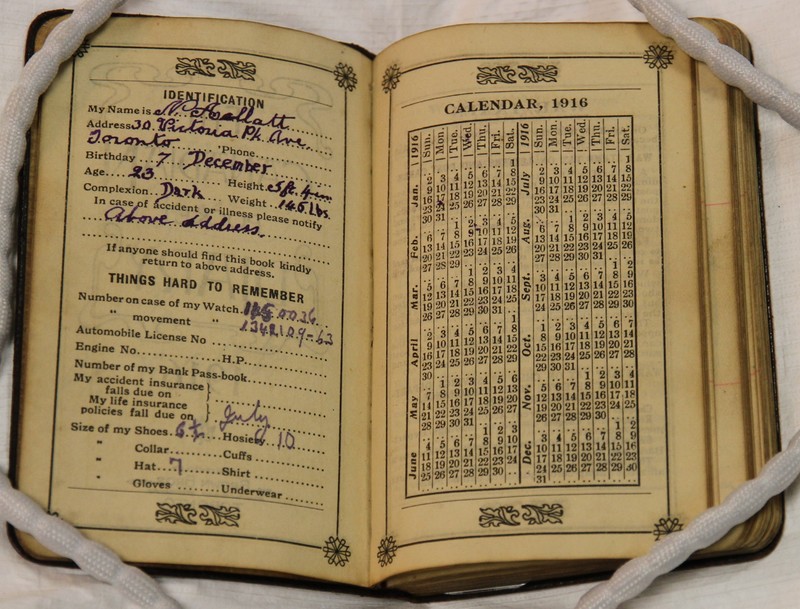 IDENTIFICATION
My Name is N. Hallatt
Address 30 Victoria Pk. Ave.
Toronto 'Phone
Birthday 7 December
Age 23 Height 5ft. 4 in
Complexion Dark Weight 145 lbs.
In case of accident or illness please notify
Above Address
If anyone should find this book kindly
return to above address.
THINGS HARD TO REMEMBER
Number on case of my Watch
" movement "
Automobile License No
Engine No. H.P.
Number of my Bank Pass-book
My accident insurance
falls due on
My life insurance
policies fall due on July
Size of my Shoes 6½ Hosiery 10
" Collar Cuffs
" Hat 7 Shirt
" Gloves Underwear
CALENDAR, 1916
1916 Sun. Mon. Tue. Wed. Thu. Fri. Sat.
Jan.
1
2 3 4 5 6 7 8
9 10 11 12 13 14 15
16 17 18 19 20 21 22
23 24 25 26 27 28 29
30 31
Feb.
1 2 3 4 5
6 7 8 9 10 11 12
13 14 15 16 17 18 19
20 21 22 23 24 25 26
27 28 29
Mar.
1 2 3 4
5 6 7 8 9 10 11
12 13 14 15 16 17 18
19 20 21 22 23 24 25
26 27 28 29 30 31
April
1
2 3 4 5 6 7 8
9 10 11 12 13 14 15
16 17 18 19 20 21 22
23 24 25 26 27 28 29
30
May
1 2 3 4 5 6
7 8 9 10 11 12 13
14 15 16 17 18 19 20
21 22 23 24 25 26 27
28 29 30 31
June
1 2 3
4 5 6 7 8 9 10
11 12 13 14 15 16 17
18 19 20 21 22 23 24
25 26 27 28 29 30
1916 Sun. Mon. Tue. Wed. Thu. Fri. Sat.
July
1
2 3 4 5 6 7 8
9 10 11 12 13 14 15
16 17 18 19 20 21 22
23 24 25 26 27 28 29
30 31
Aug.
1 2 3 4 5
6 7 8 9 10 11 12
13 14 15 16 17 18 19
20 21 22 23 24 25 26
27 28 29 30 31
Sept.
1 2
3 4 5 6 7 8 9
10 11 12 13 14 15 16
17 18 19 20 21 22 23
24 25 26 27 28 29 30
Oct.
1 2 3 4 5 6 7
8 9 10 11 12 13 14
15 16 17 18 19 20 21
22 23 24 25 26 27 28
29 30 31
Nov.
1 2 3 4
5 6 7 8 9 10 11
12 13 14 15 16 17 18
19 20 21 22 23 24 25
26 27 28 29 30
Dec.
1 2
3 4 5 6 7 8 9
10 11 12 13 14 15 16
17 18 19 20 21 22 23
24 25 26 27 28 29 30
31